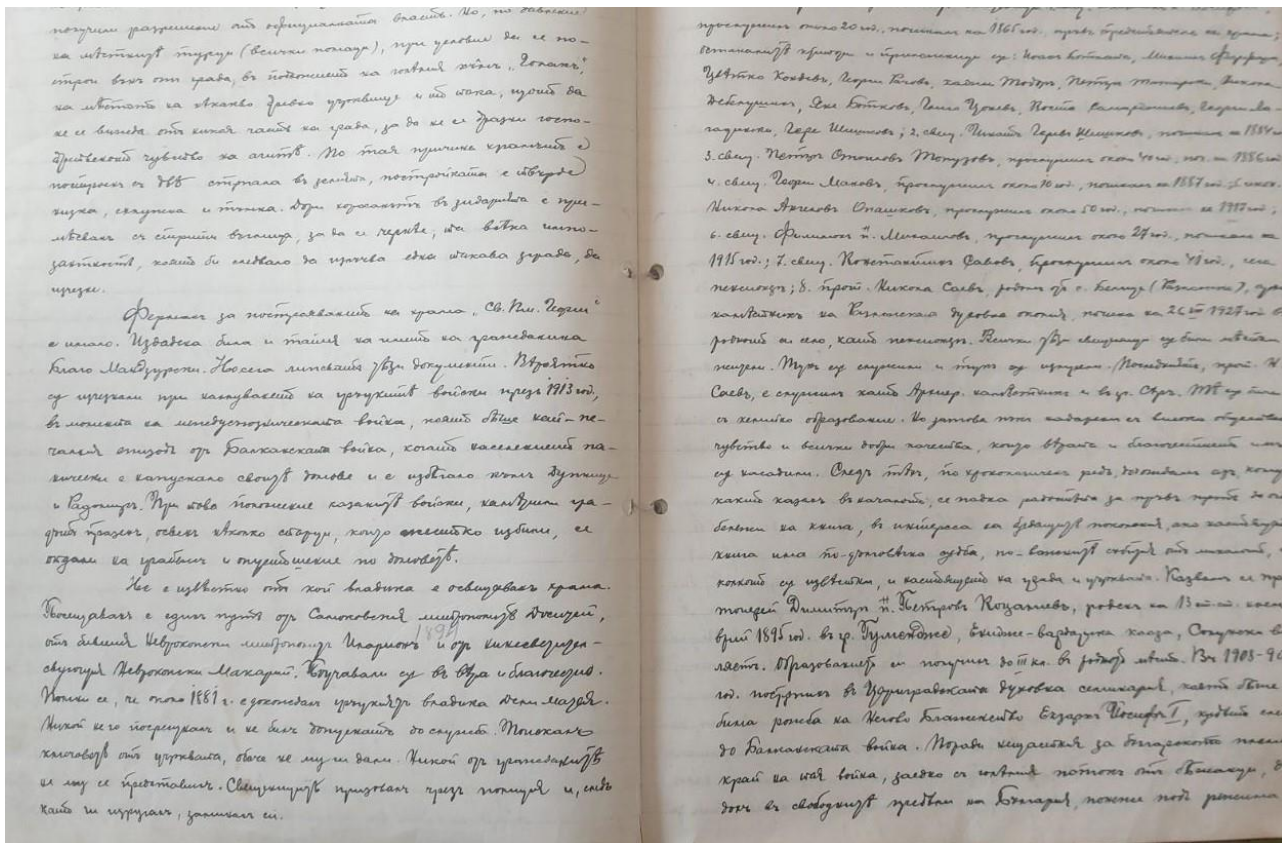 получили разрешение отъ официалната власть. Но, по давление
на мѣстнитѣ турци (всички помаци), при условие да се по-
строи вънъ отъ града, въ подножието на голѣмия хълмъ „Голакъ“,
на мѣстото на нѣкакво древно църквище и то така, щото да
не се вижда отъ никоя часть на града, за да не се дразни госпо-
дарвеното чувство на агитѣ. По тая причина храмътъ е
построенъ съ двѣ стѫпала въ земята, постройката е твърде
низка, схлупена и тъмна. Дори хоросанътъ въ зидарията е при-
мѣсванъ съ стрити въглища, за да се чернѣе, та всѣка импо-
зантность, която би следвало да излъчва една такава сграда, да
изчезне.
Ферманъ за построяването на храма „Св. Вм. Георги“
е имало. Издаденъ билъ и тапия на името на гражданина
Благо Мандзурски. Но сега липсватъ тѣзи документи. Вѣроятно
сѫ изчезнали при нахлуването на гръцкитѣ войски презъ 1913 год.,
въ момента на междусъюзническата война, която бѣше най-пе-
чалния епизодъ отъ Балканската война, когато населението па-
нически е напуснало своитѣ домове и е избѣгало къмъ Дупница
и Радомиръ. При това положение казанитѣ войски, намѣрили гра-
дътъ празенъ, освенъ нѣколко старци, които жестоко избили, се
отдали на грабежи и опустошение по домоветѣ.
Не е извѣстно отъ кой владика е освещаванъ храма.
Посещаванъ е единъ пѫть отъ Самоковския митрополитъ Доситей,
отъ бившия Неврокопски митрополитъ Иларионъ 1894 и отъ нине
Неврокопски Макарий. Поучавали сѫ въ вѣра и благочестие.
Помни се, че около 1881 г. е дохождалъ гръцкиятъ владика
Никой не го посрещналъ и не билъ допуснатъ до служба. Поискалъ
ключоветѣ отъ църквата, обаче не му ги дали. Никой отъ гражданитѣ
не му се представилъ. Свещеницитѣ призовалъ чрезъ полиция и, следъ
като ги изругалъ, заминалъ си.
прослужилъ около 20 год., починалъ на 1865 год., пръвъ
останалитѣ ктитори и
Цвѣтко Кондевъ, Георги хаджи Тодоръ, Петър Никола
Яне Ботковъ, Коста Георги Ла-
Гаре Шишковъ; 2. свещ. Шишковъ, починалъ на 1884
3. свещ. Петъръ прослужилъ около 40 год., поч. на 1886 год.
4. свещ. Георги Маковъ, прослужилъ около 10 год., починалъ на 1887 год.
Никола Ангеловъ Опашковъ, прослужилъ около 50 год., починалъ на 1917
6. свещ. Филимонъ п. Михаиловъ, прослужилъ около 27 год., починалъ на
1915 год.; 7. свещ. Константинъ Савовъ, прослужилъ около 40 год., сега
пенсионеръ; 8. прот. Никола Саевъ, роденъ отъ с. Белица (Разложко),
намѣстникъ на духовна околия, почина на 26 III 1927 год. въ
родното си село, като пенсионеръ. Всички тѣзи свещеници сѫ били мѣстни
Тукъ сѫ служили и тукъ сѫ Последниятъ, прот. Н.
Саевъ, е служилъ като Архиер. намѣстникъ и въ гр. Сѣръ. Тѣ сѫ били
съ нелико образование. Но затова пъкъ надарени съ високо обществено
чувство и всички добри качества, които вѣрата и благочестието имъ
сѫ насадили. Следъ тѣхъ, по хронологиченъ редъ, дохождамъ азъ, комуто
както казахъ въ началото, се падна за пръвъ пѫть да
бележки на книга, въ интереса на бѫдащитѣ поколения, ако настоящата
книга има по-дълговѣчна сѫдба, по-важнитѣ събития отъ миналото,
колкото сѫ извѣстни, и настоящето на града и църквата. Казвамъ се про-
тоиерей Димитъръ п. Петровъ Коцаневъ, роденъ на 13
врий 1895 год. въ гр. Гуменджe, Енидже-вардарска кааза, Солунска
ласть. Образованието си получихъ до III кл. въ родното мѣсто. Въ 1903-904
год. постѫпихъ въ Цариградската духовна семинария, която бѣше
била рожба на Негово Блаженство Екзархъ Йосифъ I,
до Балканската война. Поради нещастния за българското племе
край на тая война, заедно съ голѣмия потокъ отъ бѣжанци,
дохъ въ свободнитѣ предѣли на България, понеже подъ режима